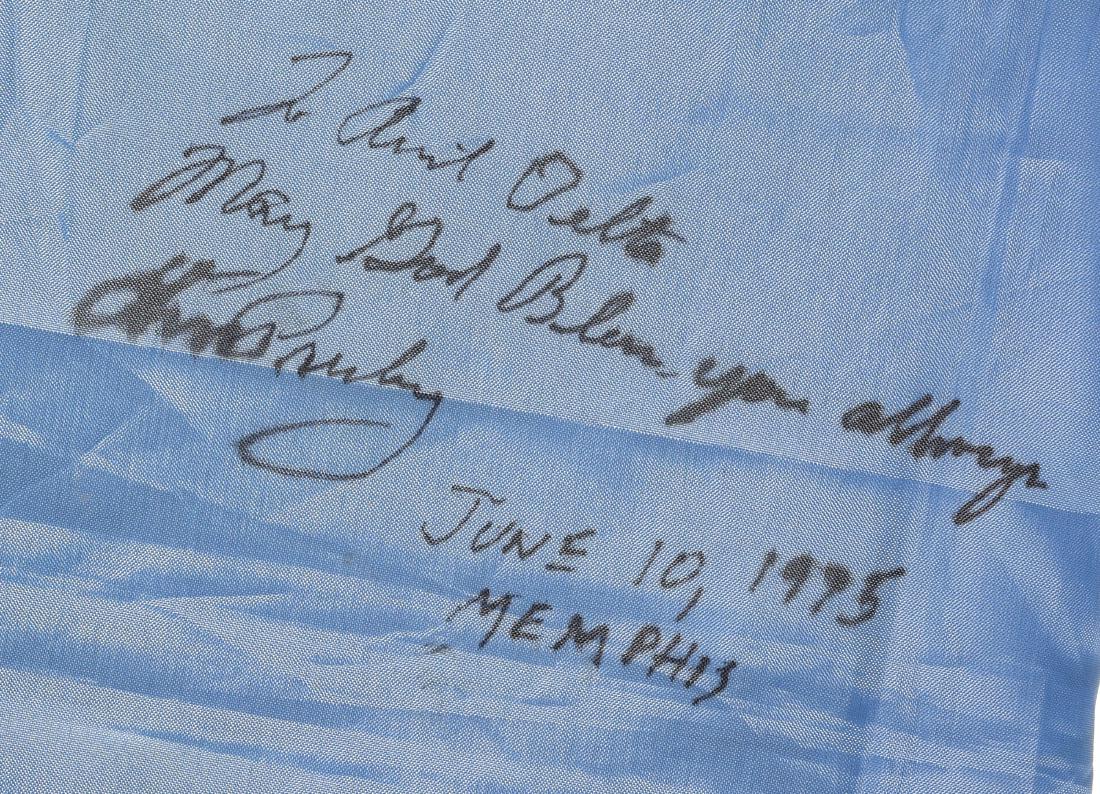 To Aunt Delta
May God Bless you always
Elvis Presley
JUNE 10, 1975
MEMPHIS